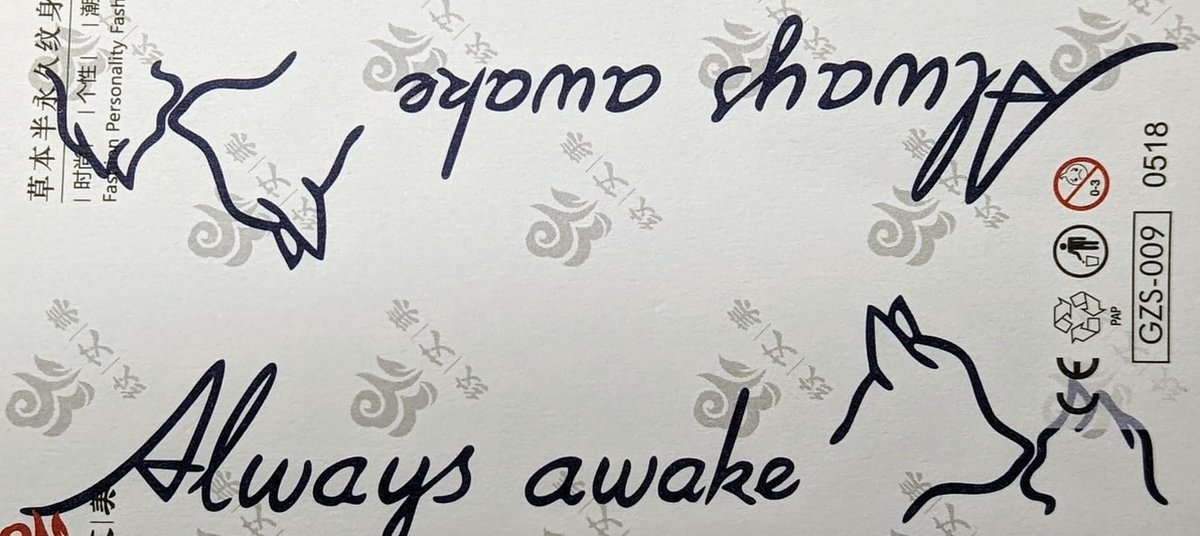 草本半永久纹身
| 时尚 | 个性 | 潮
Fashion Personality Fash
Always awake
Always awake
0-3
0518
GZS-009
PAP
CE
美